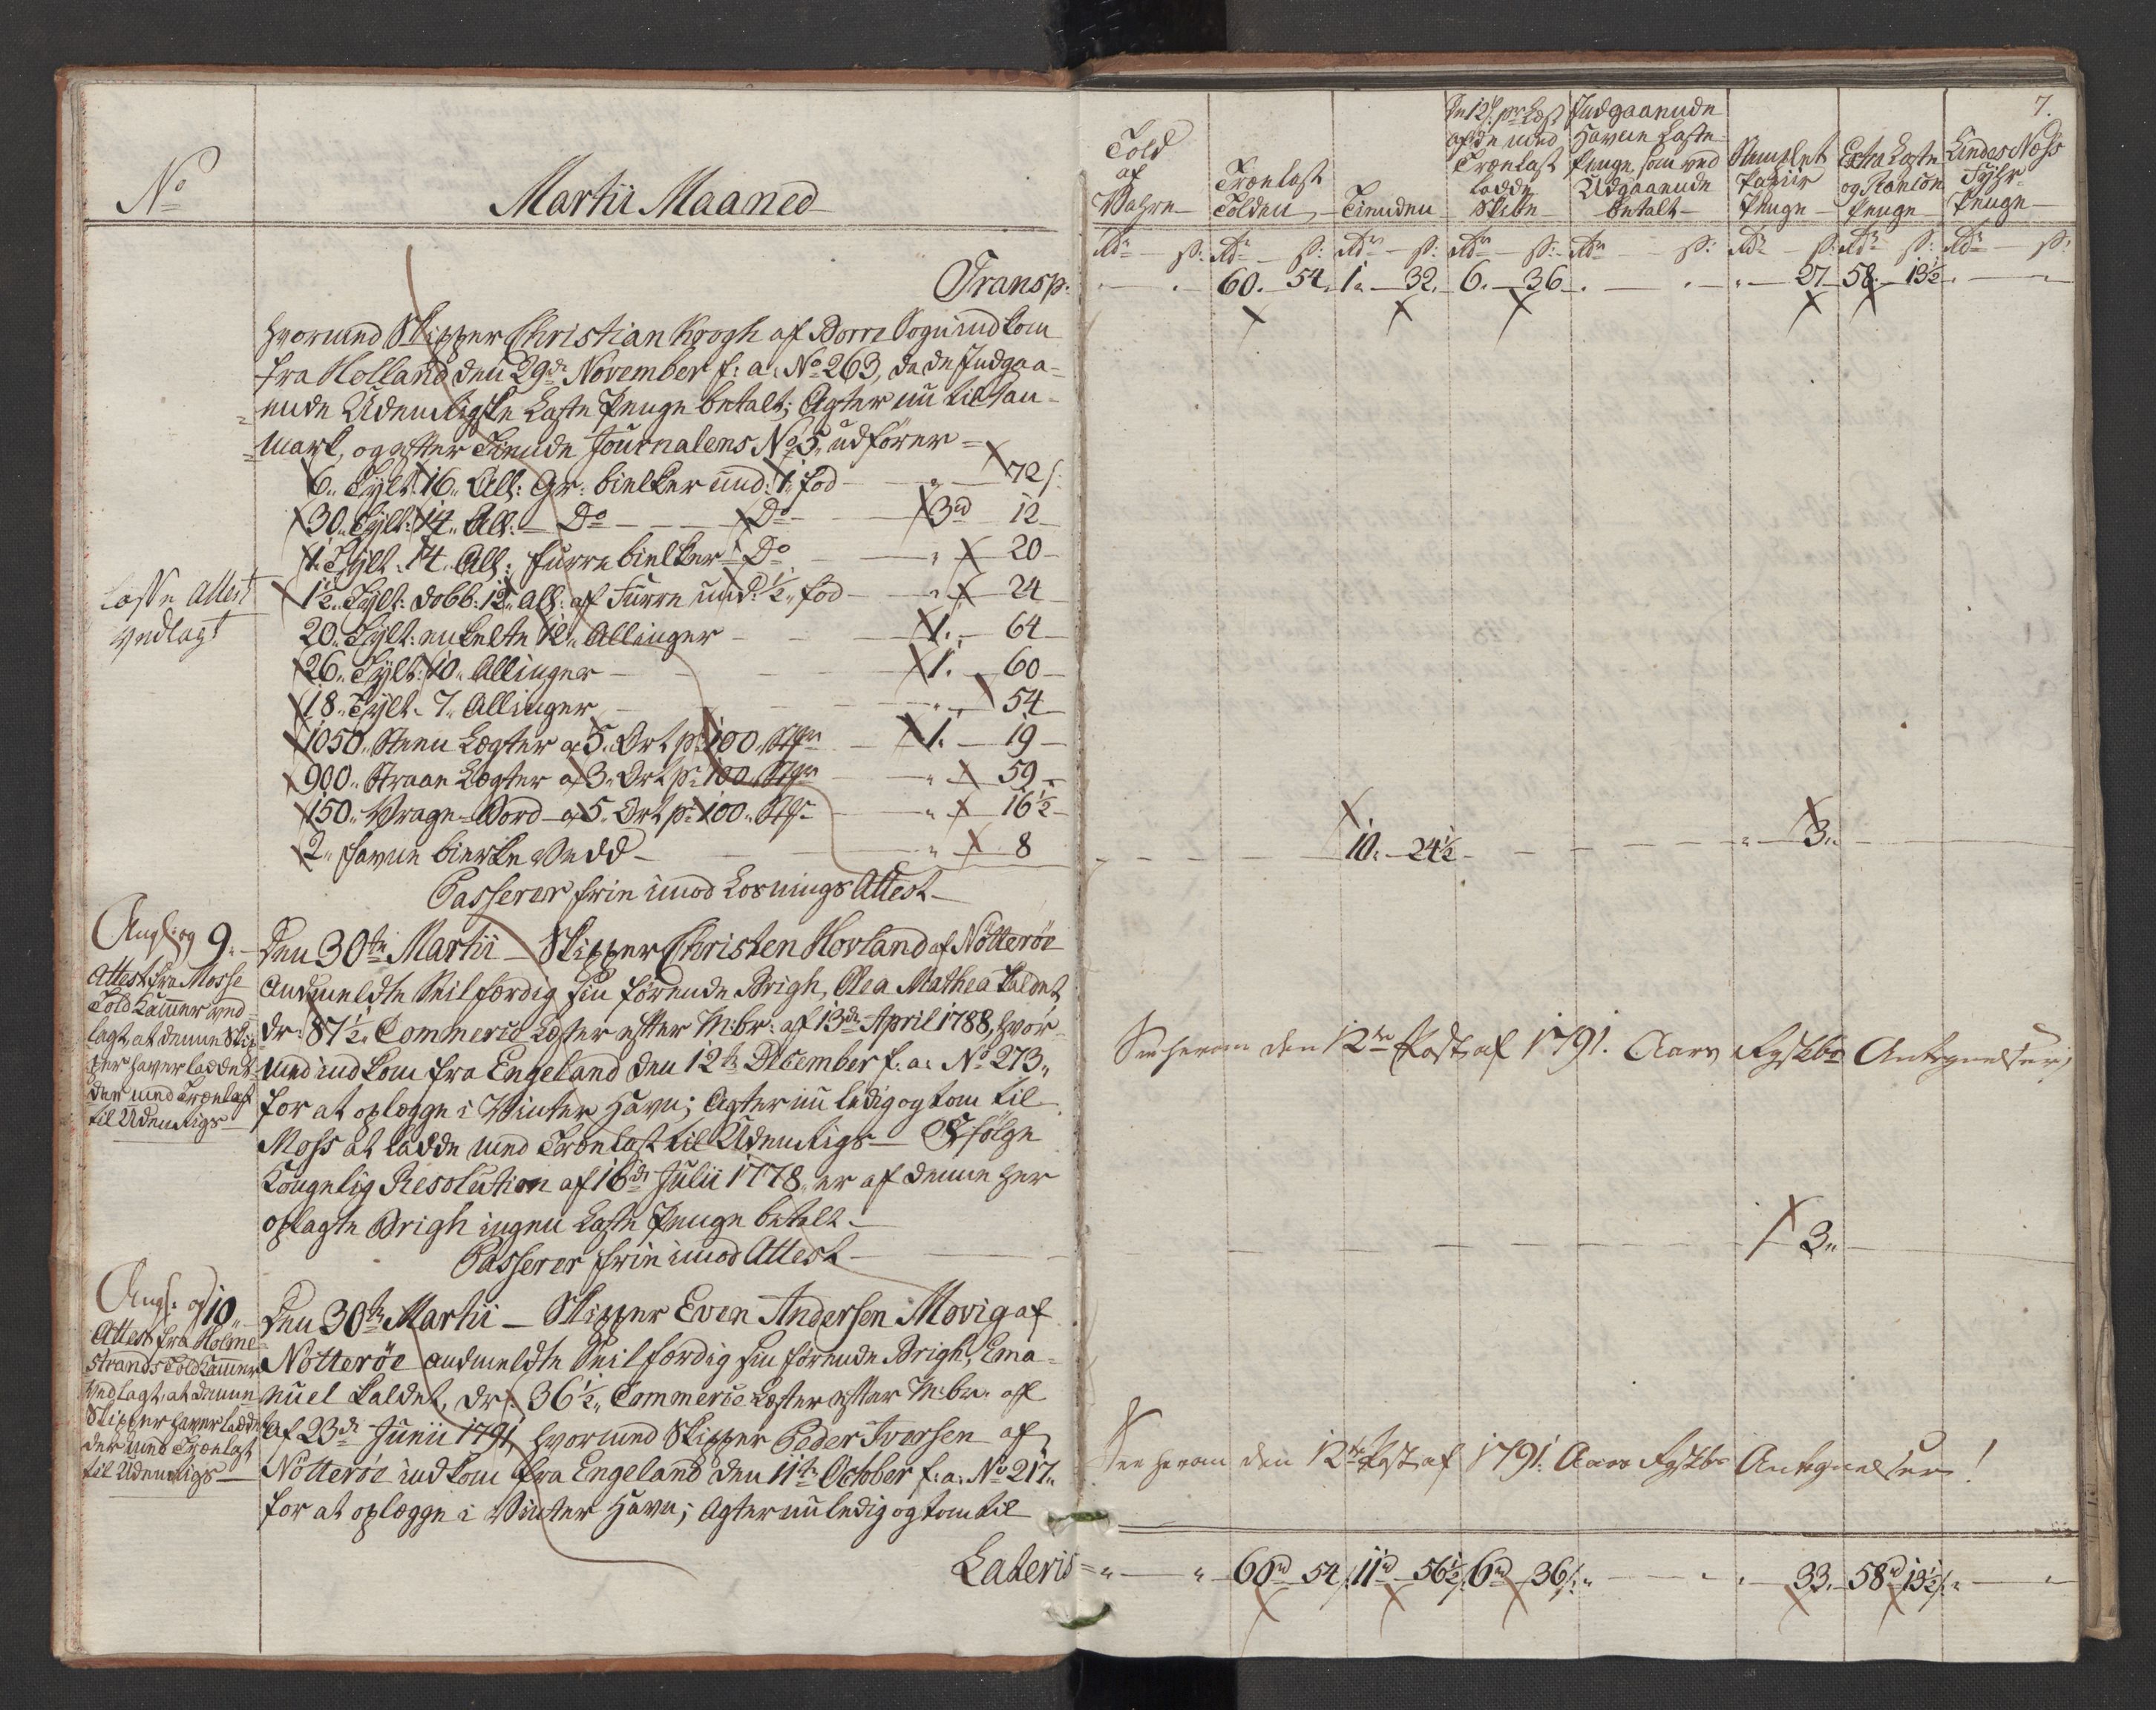 No
Martii Maaned
Transp:
hvormed Skipper Christian Krogh af Borre Sogn indkom
fra Holland den 29de November f: a: No 263, da de Indgaa-
ende Udenrigske Læste Penge betalt; Agter nu til Dan-
mark, og efter Tiende Journalens No 5, udfører =
6" Tylt: 16" All: Gr: bielker und: 1 fod - " - 72 s:
30" Tylt: 14" All: - Do - Do - 3rd 12
1" Tylt. 14" All: furre bielker Do - " - 20
Losse Attest
vedlagt
1½" Tylt: dobb: 12" All: af Furre und: ½" fod - " - 24
20" Tylt: enkelte 12" Allinger - 1. - 64
26" Tylt: 10" Allinger - 1. - 60
18" Tylt. 7" Allinger - " - 54
1050" Steen Lægter a 5. Ort pr 100 Stkr - 1. - 19
900" Straae Lægter a 3. Ort pr 100 Stkr - " - 59
150" Vrage-Bord a 5. Ort pr 100. Stkr - " - 16½
2" Favne bierke Vedd - " - 8
Passerer frie imod Losnings Attest
Angl: og 9.
Attest fra Mosse
Told Kammer ved-
lagt, at denne Skip-
per haver laddet
der med Trælast
til Udenrigs
Den 30te Martii - Skipper Christen Hovland af Nötteröe
andmeldte Seilfærdig sin førende Brigh, Olea Mathea kaldet,
dr: 87½" Commerce Læster efter M:br: af 13de April 1788, hvor-
med indkom fra Engeland den 12te December f: a: No 273"
for at oplægge i Vinter Havn; Agter nu ledig og tom til
Moss at ladde med Trælast til Udenrigs - Ifølge
Kongelig Resolution af 16de Julii 1778, er af denne her
oplagte Brigh ingen Læste Penge betalt -
Passerer frie imod Attest
Angl: og 10"
Attest fra Holme-
strands Told Kammer
vedlagt, at denne
Skipper haver laddet
der med Trælast
til Udenrigs
Den 30te Martii - Skipper Even Andersen Movig af
Nötteröe andmeldte Seilfærdig sin førende Brigh, Ema-
nuel kaldet, dr: 36½" Commerce Læster efter M:br: af
af 23de Junii 1791, hvormed Skipper Peder Iversen af
Nötteröe indkom fra Engeland den 11te October f: a: No 217"
for at oplægge i Vinter Havn; Agter nu ledig og tom til
Lateris
7.
Told af Vahre
Trælast Tolden
Tienden
De 12 s. pr Læst af de med Trælast ladde Skibe
Indgaaende Havne Læste-Penge som ved Udgaaende betalt
Stemplet Papiir Penge
Extra Læste og Rancon Penge
Lindes Næss Fyhr-Penge
Rdr - s: Rdr - s: Rdr - s: Rdr - s: Rdr - s: Rdr - s: Rdr - s: Rdr - s:
60. 54. 1. 32. 6. 36 . . 27 58. 13½
10. 24½ - " 3"
See herom den 12te Post af 1791. Aars Antegnelser;
3"
See herom den 12te Post af 1791. Aars Antegnelser!
" " 60rd 54 11rd 56½ 6rd 36 s. " " 33. 58rd 13½ s. " "